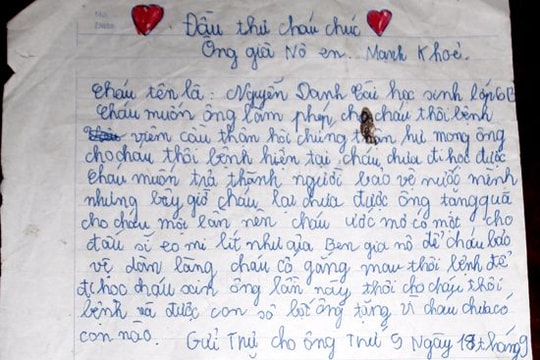 No
Date
Đầu thư cháu chúc
Ông già Nô en. Mạnh Khoẻ.
Cháu tên là: Nguyễn Danh Tài học sinh lớp 6E
Cháu muốn ông làm phép cho cháu thôi bệnh
viêm cầu thận hội chứng thận hư mong ông
cho cháu thôi bệnh hiện tại cháu chưa đi học được
cháu muốn trở thành người bảo vệ nước mình
nhưng bây giờ cháu lại chưa được ông tặng quà
cho cháu mỗi lần nên cháu ước mơ có một cho
đấu sĩ eo mi lít như của Ben gia nô để cháu bảo
vệ dân làng cháu cố gắng mau thôi bệnh để
đi học cháu xin ông lần này, thôi cho cháu thôi
bệnh và được con sô bốt ông tặng vì cháu chưa có
con nào. Gửi Thư cho ông Thứ 5 Ngày 18 tháng 9